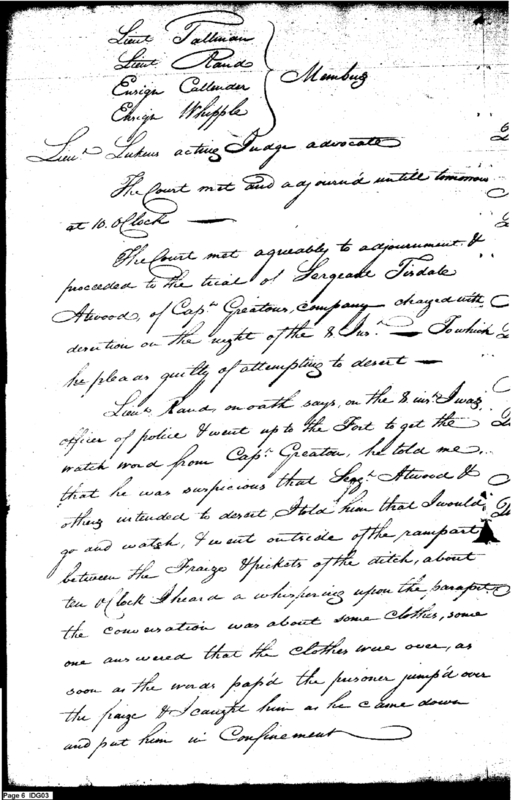 Lieut Tallman
Lieut Rand
Ensign Callender
Ensign Whipple
Members
Lieut Lukens acting Judge advocate
The Court met and adjourn'd untill tomorrow
at 10. OClock —
The Court met agreeably to adjournment &
proceeded to the trial of Sergeant Tisdale
Atwood, of Capt. Greatons, company charged with
desertion on the night of the 8 Inst. — To which
he pleads guilty of attempting to desert —
Lieut Rand, on oath says, on the 8 inst I was
officer of police & went up to the Fort to get the
watch word from Capt. Greaton, he told me,
that he was suspicious that Sergt. Atwood &
others intended to desert, I told him that I would
go and watch, & went outside of the rampart
between the Fraize & pickets of the ditch, about
ten OClock I heard a whispering upon the parapet.
the conversation was about some clothes, some
one answered that the clothes were over, as
soon as the words pass'd the prisoner jump'd over
the fraize & I caught him as he came down
and put him in Confinement
Page 6 IDG03